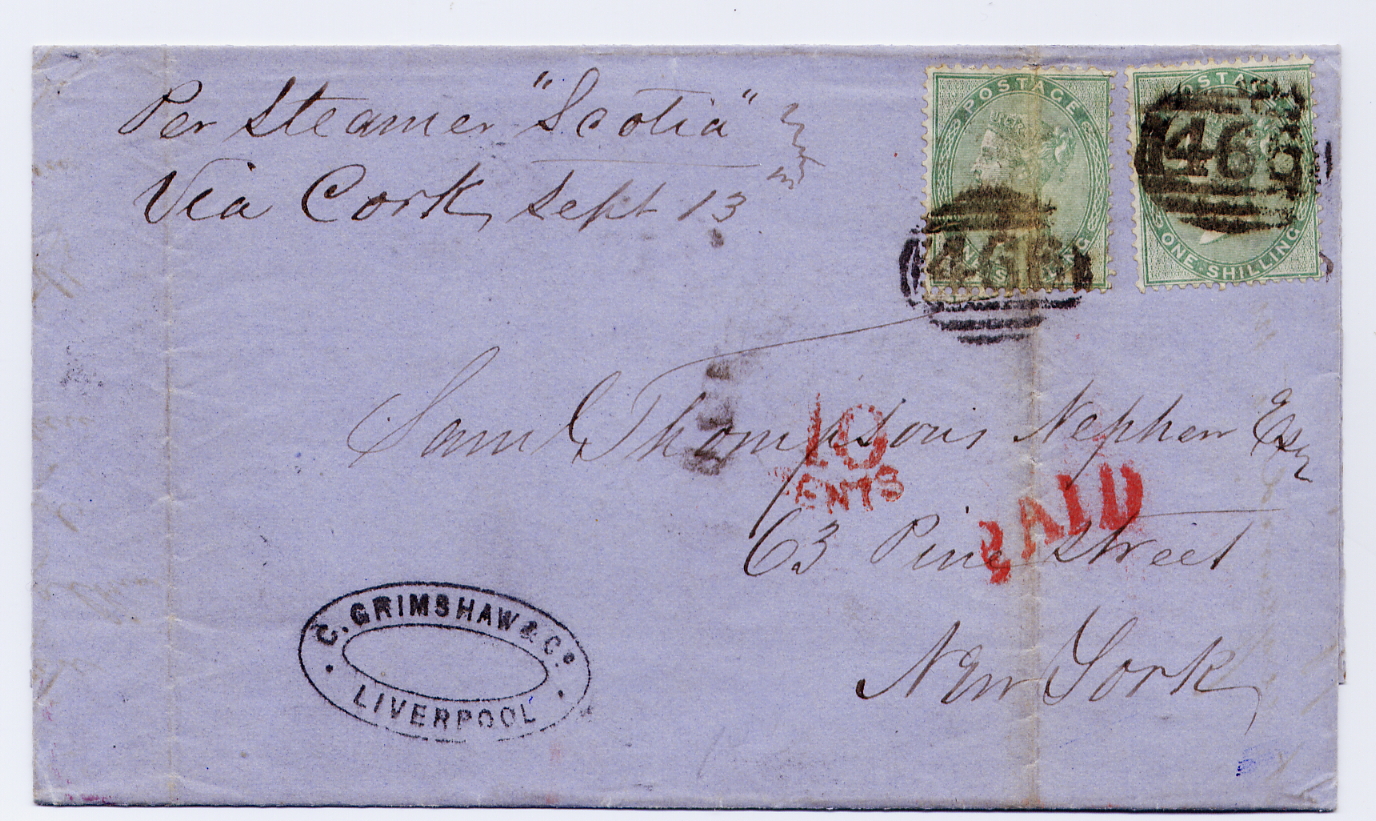 Per Steamer "Scotia"
Via Cork, Sept 13
POSTAGE
ONE SHILLING
466
POSTAGE
ONE SHILLING
466
Saml Thompsons Nephew Esq
10
CENTS
PAID
63 Pine Street
New York
C. GRIMSHAW & Co
LIVERPOOL